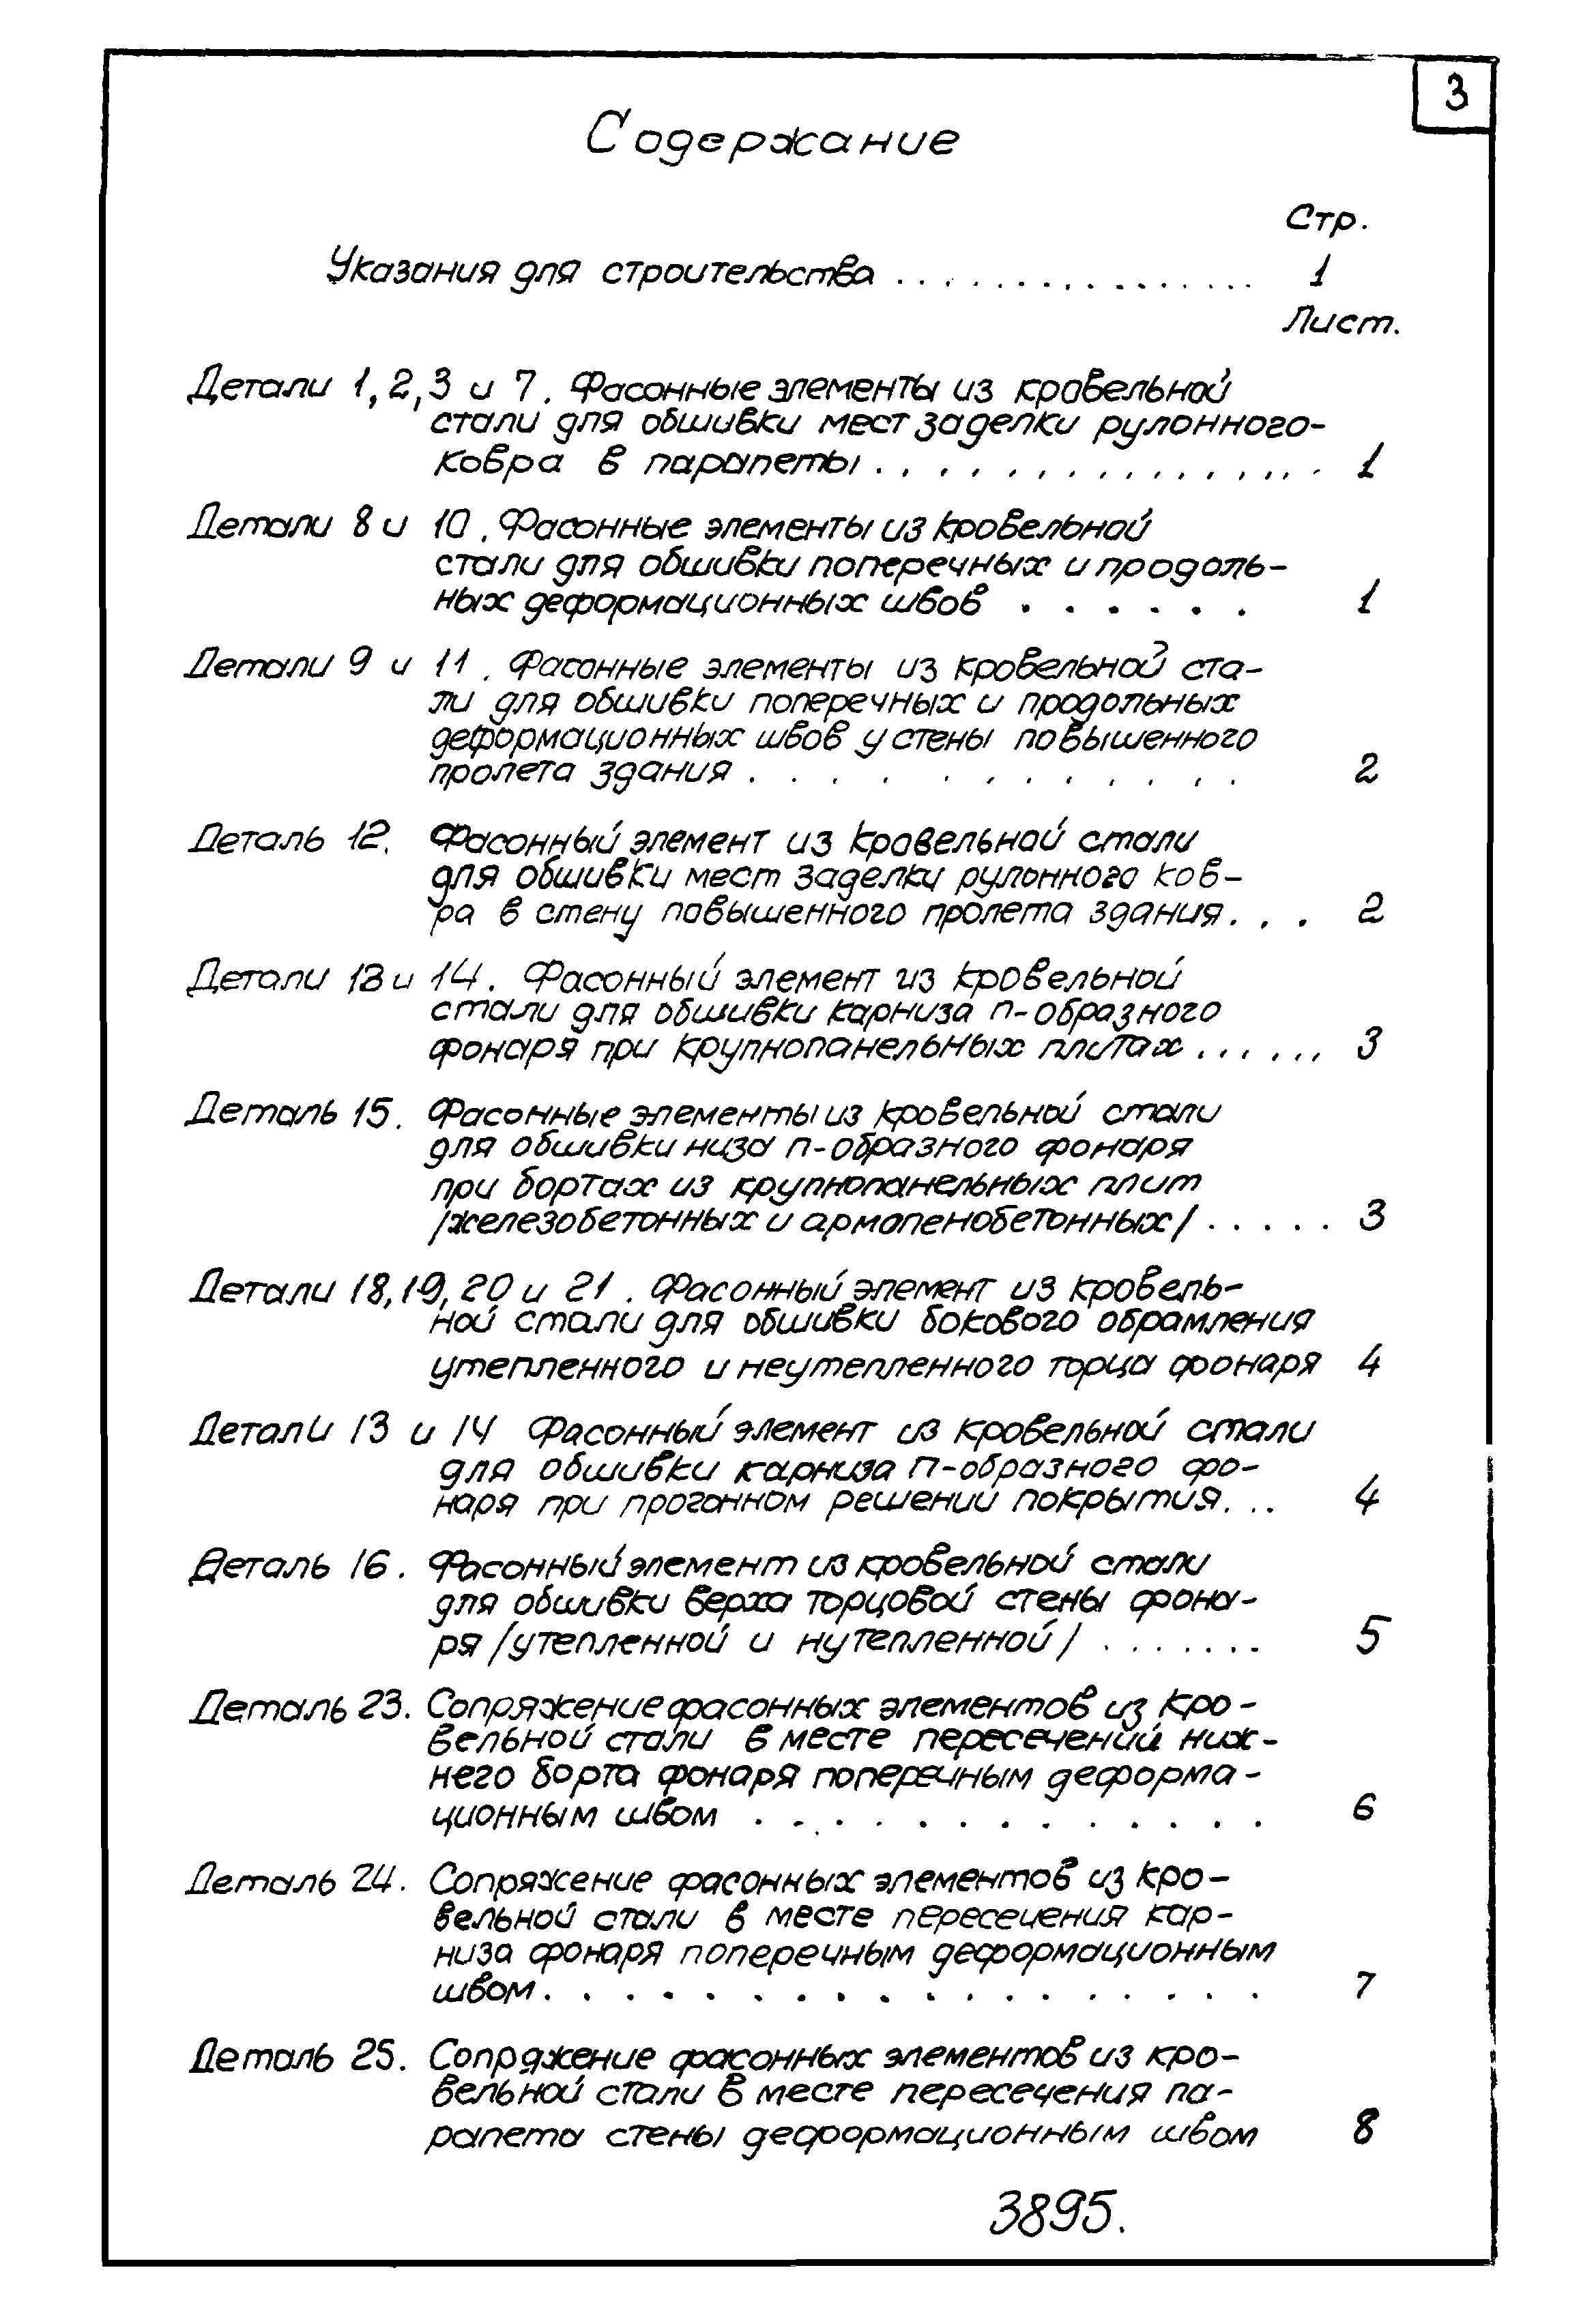 3
Содержание
Стр.
Указания для строительства . . . . . . . . . . . . . . . . 1
Лист.
Детали 1, 2, 3 и 7. Фасонные элементы из кровельной
стали для обшивки мест заделки рулонного-
ковра в парапеты . . . . . . . . . . . . . . . . 1
Детали 8 и 10. Фасонные элементы из кровельной
стали для обшивки поперечных и продоль-
ных деформационных швов . . . . . . 1
Детали 9 и 11. Фасонные элементы из кровельной ста-
ли для обшивки поперечных и продольных
деформационных швов у стены повышенного
пролета здания . . . . . . . . . . . . 2
Деталь 12. Фасонный элемент из кровельной стали
для обшивки мест заделки рулонного ков-
ра в стену повышенного пролета здания. . . 2
Детали 13 и 14. Фасонный элемент из кровельной
стали для обшивки карниза п-образного
фонаря при крупнопанельных плитах . . . . . . 3
Деталь 15. Фасонные элементы из кровельной стали
для обшивки низа п-образного фонаря
при бортах из крупнопанельных плит
/железобетонных и армопенобетонных/ . . . . . 3
Детали 18, 19, 20 и 21. Фасонный элемент из кровель-
ной стали для обшивки бокового обрамления
утепленного и неутепленного торца фонаря 4
Детали 13 и 14 Фасонный элемент из кровельной стали
для обшивки карниза п-образного фо-
наря при прогонном решении покрытия. . . 4
Деталь 16. Фасонный элемент из кровельной стали
для обшивки верха торцовой стены фона-
ря /утепленной и нутепленной/ . . . . . . . 5
Деталь 23. Сопряжение фасонных элементов из кро-
вельной стали в месте пересечений ниж-
него борта фонаря поперечным деформа-
ционным швом . . . . . . . . . . . . . 6
Деталь 24. Сопряжение фасонных элементов из кро-
вельной стали в месте пересечения кар-
низа фонаря поперечным деформационным
швом. . . . . . . . . . . . . . . . . . 7
Деталь 25. Сопряжение фасонных элементов из кро-
вельной стали в месте пересечения па-
рапета стены деформационным швом 8
3895.